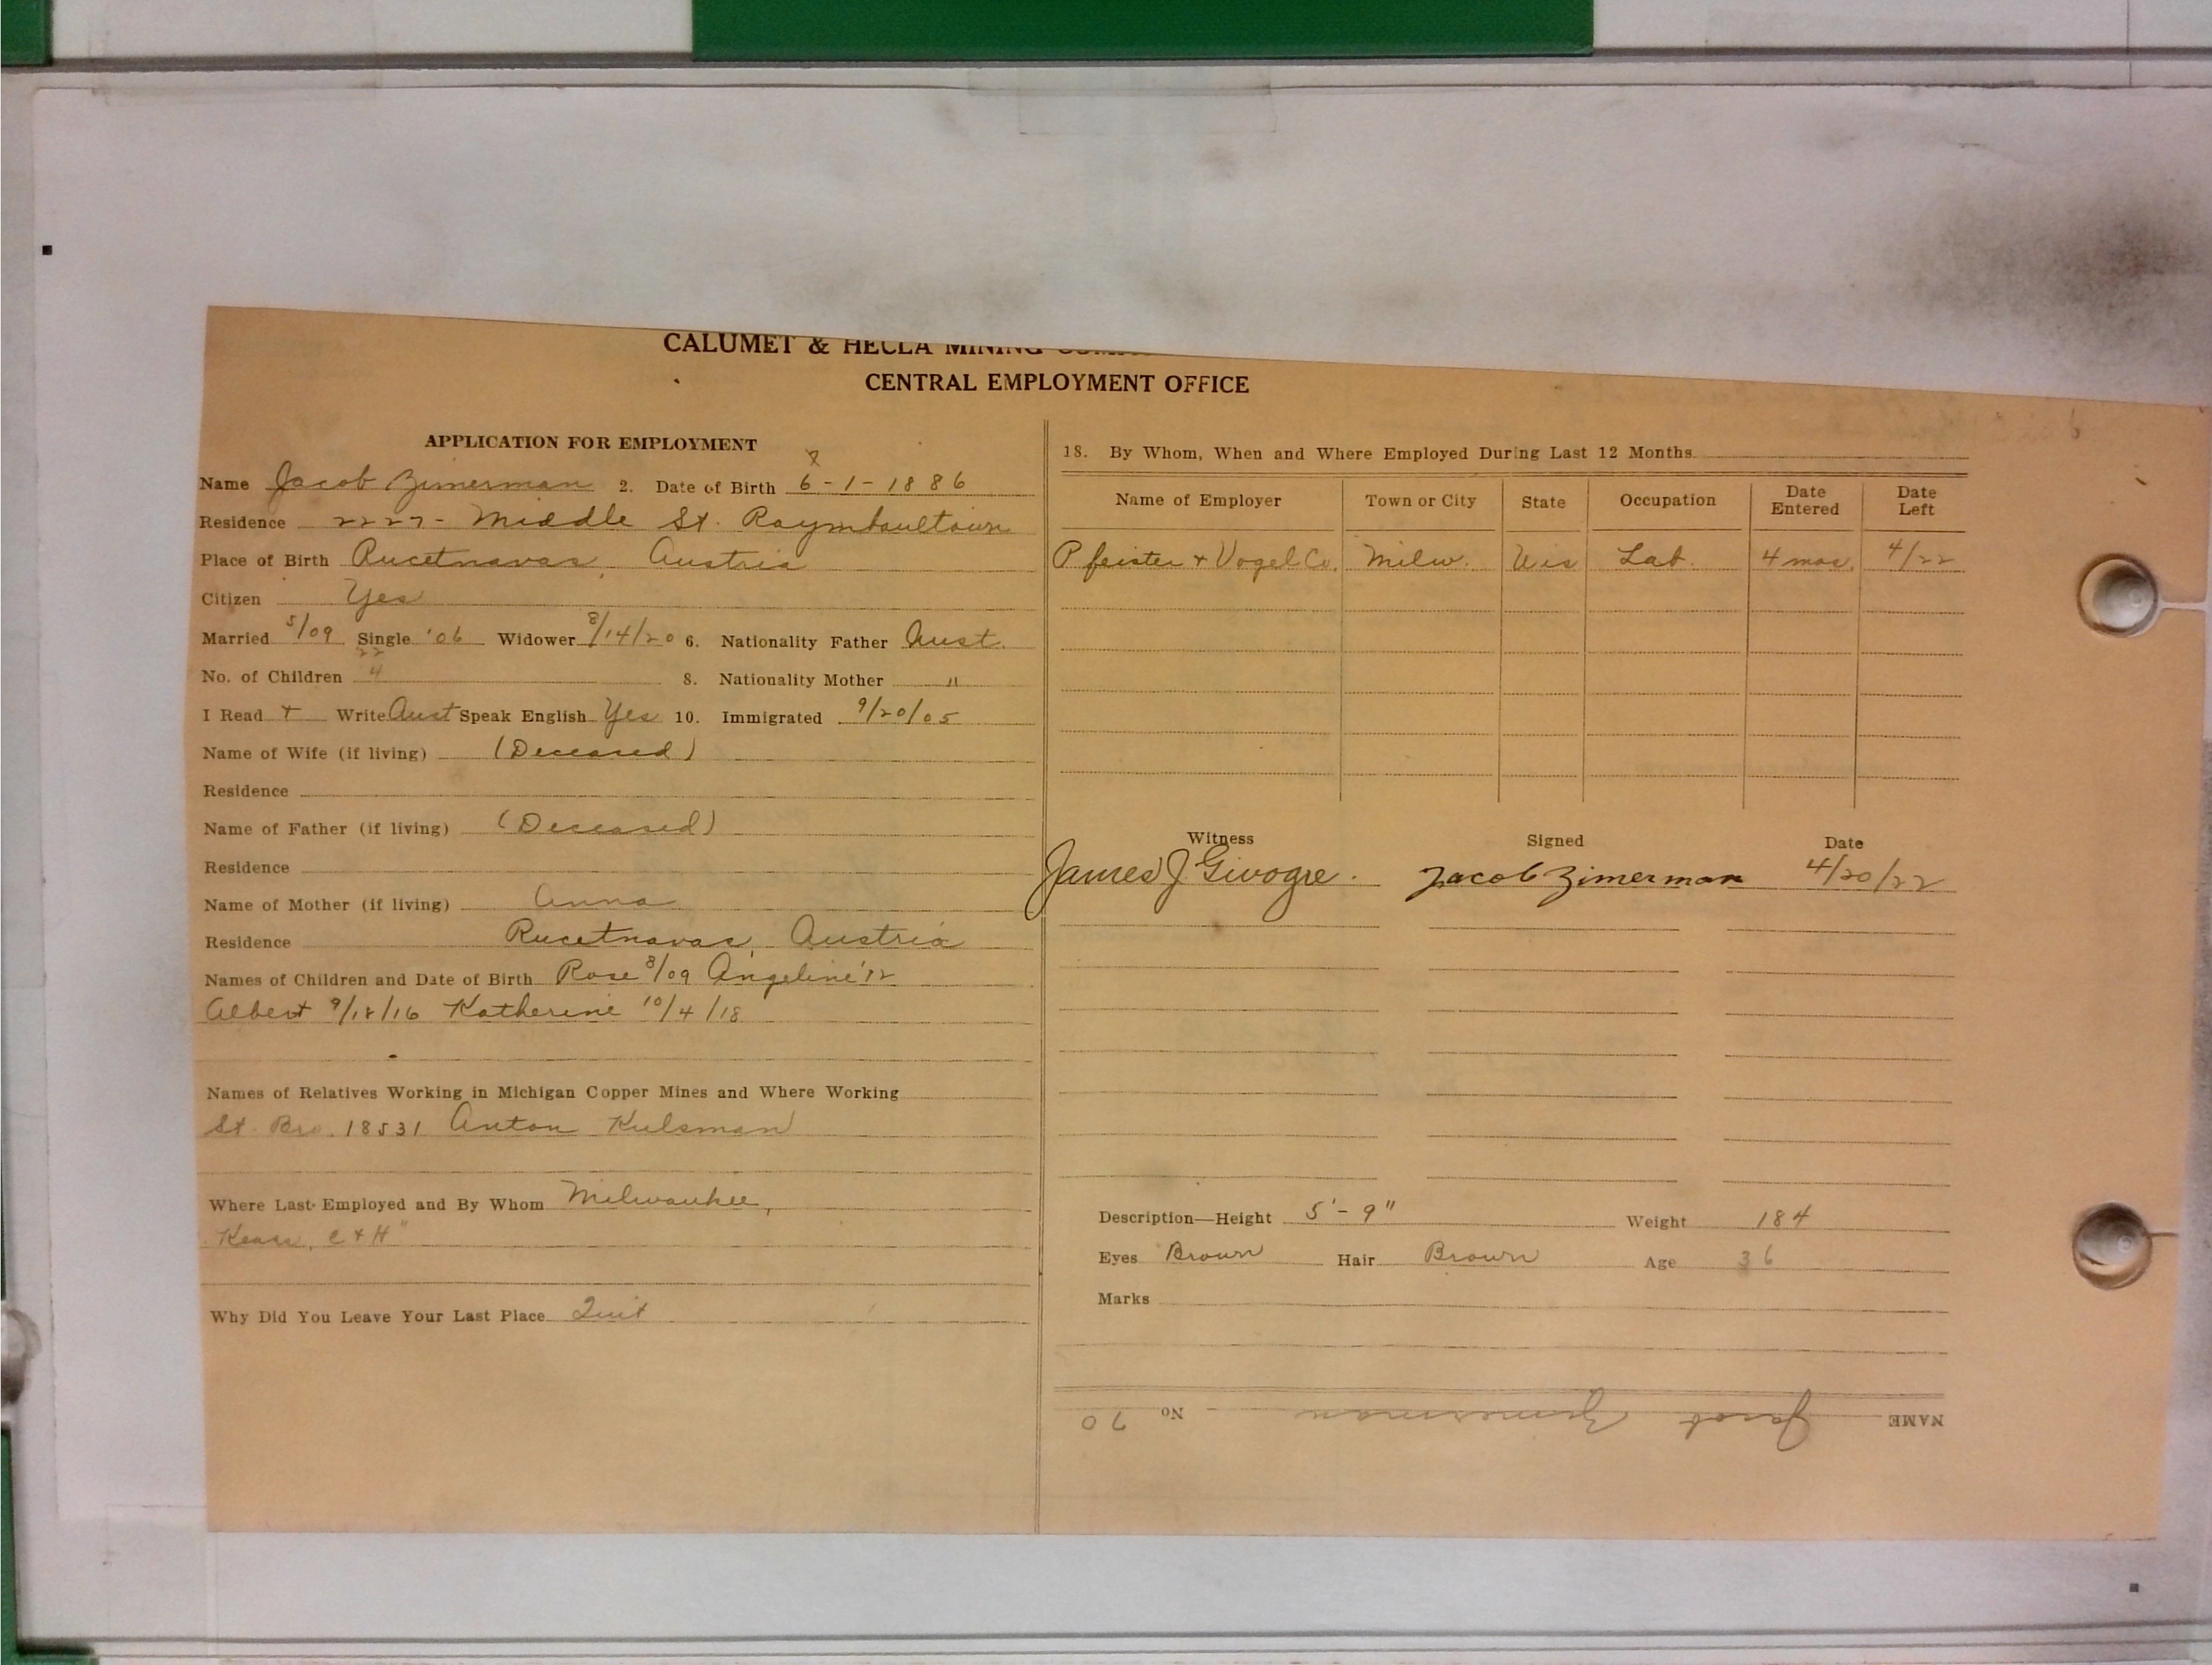 CALUMET & HECLA MINING
CENTRAL EMPLOYMENT OFFICE
APPLICATION FOR EMPLOYMENT
Name Jacob Zimerman 2. Date of Birth 6-1-1886
Residence 2227- Middle St. Raymbaultown
Place of Birth Rucetnavas, Austria
Citizen Yes
Married 5/09 Single '06 Widower 8/14/20 6. Nationality Father Aust.
22
No. of Children 4 8. Nationality Mother "
I Read + Write Aust Speak English Yes 10. Immigrated 9/20/05
Name of Wife (if living) (Deceased)
Residence
Name of Father (if living) (Deceased)
Residence
Name of Mother (if living) Anna
Residence Rucetnavas, Austria
Names of Children and Date of Birth Rose 8/09 Angeline '12
Albert 9/18/16 Katherine 10/4/18
Names of Relatives Working in Michigan Copper Mines and Where Working
St. Bro. 18531 Anton Kulsman
Where Last Employed and By Whom Milwaukee,
C & H"
Why Did You Leave Your Last Place Quit
18. By Whom, When and Where Employed During Last 12 Months
Name of Employer Town or City State Occupation Date Entered Date Left
Pfeister + Vogel Co. Milw. Wis Lab. 4 mos. 4/22
Witness Signed Date
James J Givogre. Jacob Zimerman 4/20/22
Description—Height 5'-9" Weight 184
Eyes Brown Hair Brown Age 36
Marks
NAME Jacob Zimerman No 70